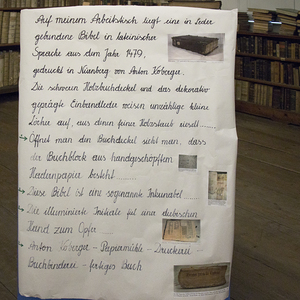 Auf meinem Arbeitstisch liegt eine in Leder
gebundene Bibel in lateinischer
Sprache aus dem Jahr 1479,
gedruckt in Nürnberg von Anton Koberger.
Die schweren Holzbuchdeckel und das dekorativ
geprägte Einbandleder weisen unzählige kleine
Löcher auf, aus denen feiner Holzstaub rieselt......
→ Öffnet man den Buchdeckel sieht man, dass
der Buchblock aus handgeschöpftem
Hadernpapier besteht......
→ Diese Bibel ist eine sogenannte Inkunabel....
→ Die illuminierte Initiale fiel einer diebischen
Hand zum Opfer....
→ Anton Koberger - Papiermühle - Druckerei -
Buchbinderei - fertiges Buch